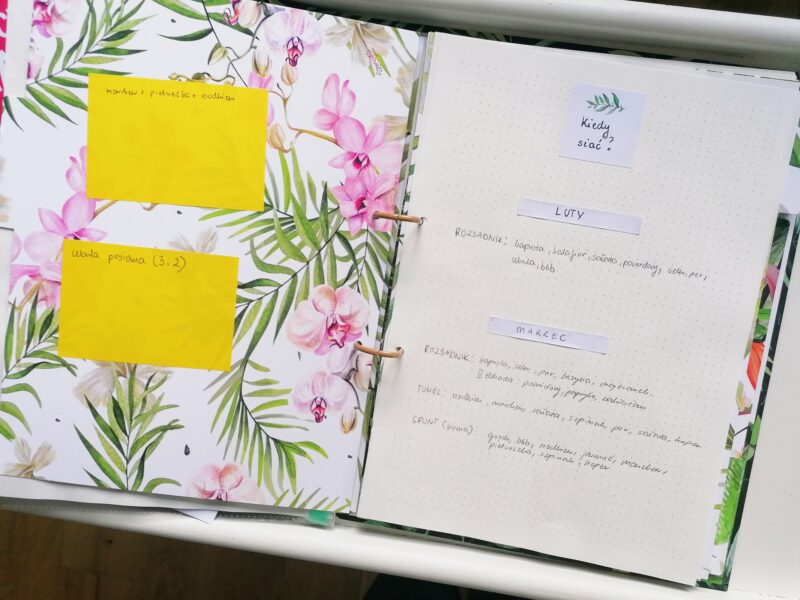 marchew + pietruszka + rzodkiew
cebula posiana (3 i 2)
Kiedy
siać?
LUTY
ROZSADNIK: kapusta, kalafior, sałata, pomidory, seler, por,
cebula, bób
MARZEC
ROZSADNIK: kapusta, seler, por, bazylia, majeranek
II dekada: pomidory, papryka,
TUNEL: rzodkiew, marchew, sałata, szpinak, por, sałata, koper
GRUNT (koniec) groch, bób, rzodkiew, marchew,
pietruszka, szpinak, koper